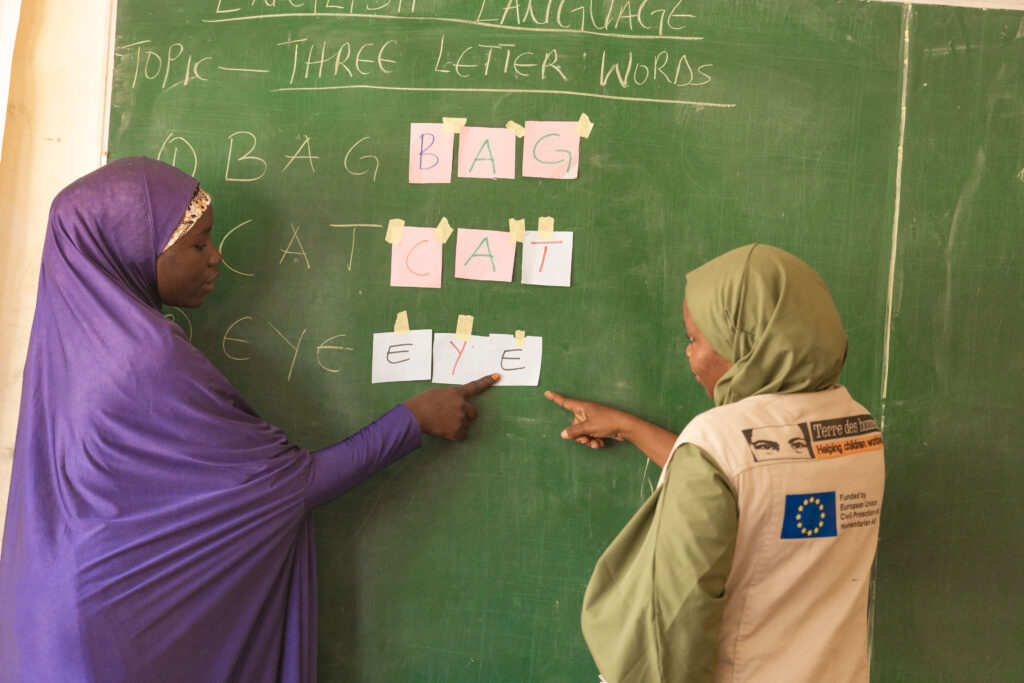 ENGLISH LANGUAGE
TOPIC — THREE LETTER WORDS
① BAG BAG
CAT CAT
EYE EYE
Terre des
Helping children
Funded by
European Union
Civil Protection and
Humanitarian Aid